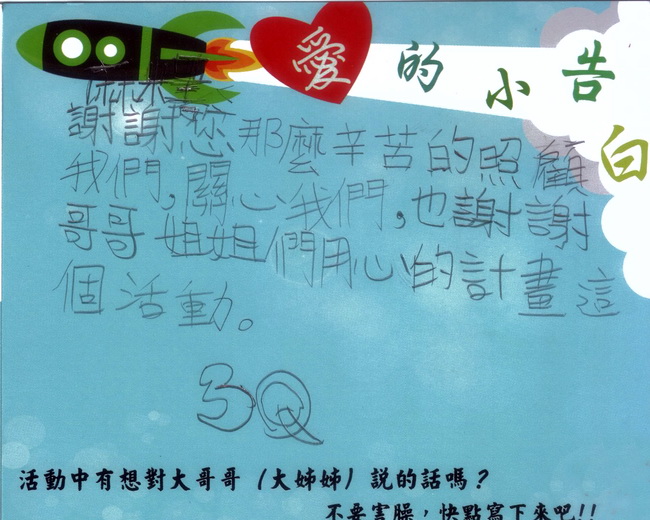 愛的小告白
謝謝您那麼辛苦的照顧
我們,關心我們,也謝謝
哥哥姐姐們用心的計畫這
個活動。
3Q
活動中有想對大哥哥（大姊姊）說的話嗎？
不要害臊，快點寫下來吧!!